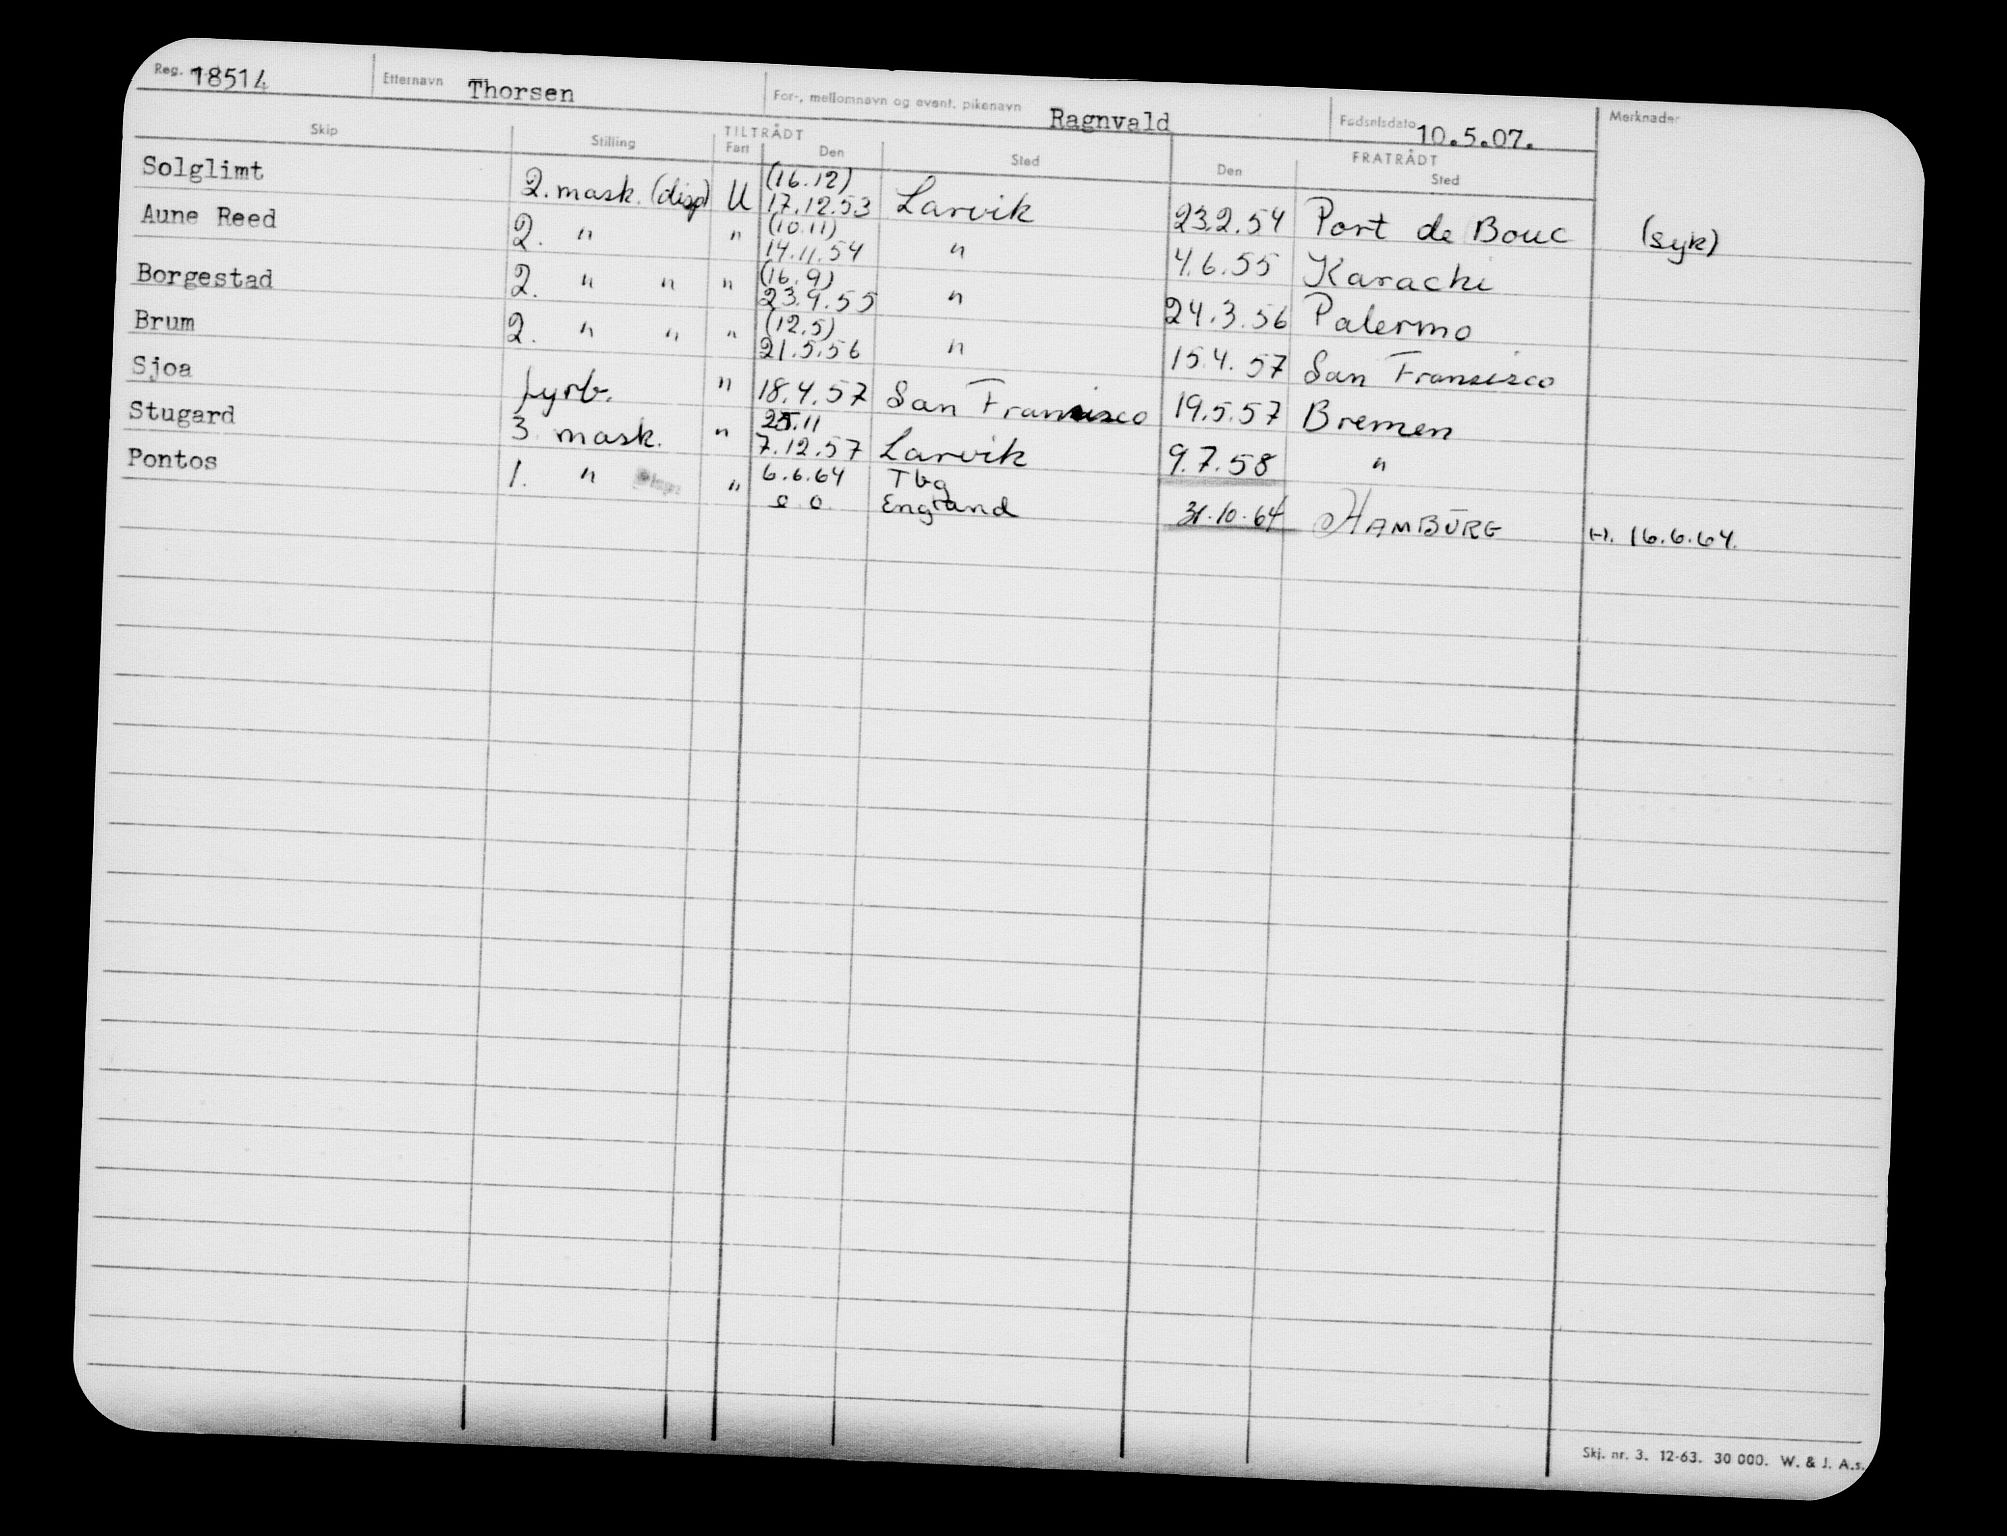 Reg. 18514 Etternavn Thorsen For-, mellomnavn og event. pikenavn Ragnvald Fødselsdato 10.5.07. Merknader
Skip Stilling TILTRÅDT FRATRÅDT
Fart Den Sted Den Sted
Solglimt 2. mask. (disp) U (16.12) 17.12.53 Larvik 23.2.54 Port de Bouc (syk)
Aune Reed 2. " " (10.11) 14.11.54 " 4.6.55 Karachi
Borgestad 2. " " " (16.9) 23.9.55 " 24.3.56 Palermo
Brum 2. " " " (12.5) 21.5.56 " 15.4.57 San Fransisco
Sjoa fyrb. " 18.4.57 San Fransisco 19.5.57 Bremen
Stugard 3 mask. " 25.11 7.12.57 Larvik 9.7.58 "
Pontos 1. " " 6.6.64 Tbg 31.10.64 HAMBURG H. 16.6.64.
England
Skj. nr. 3. 12-63. 30 000. W. & J. A.s.